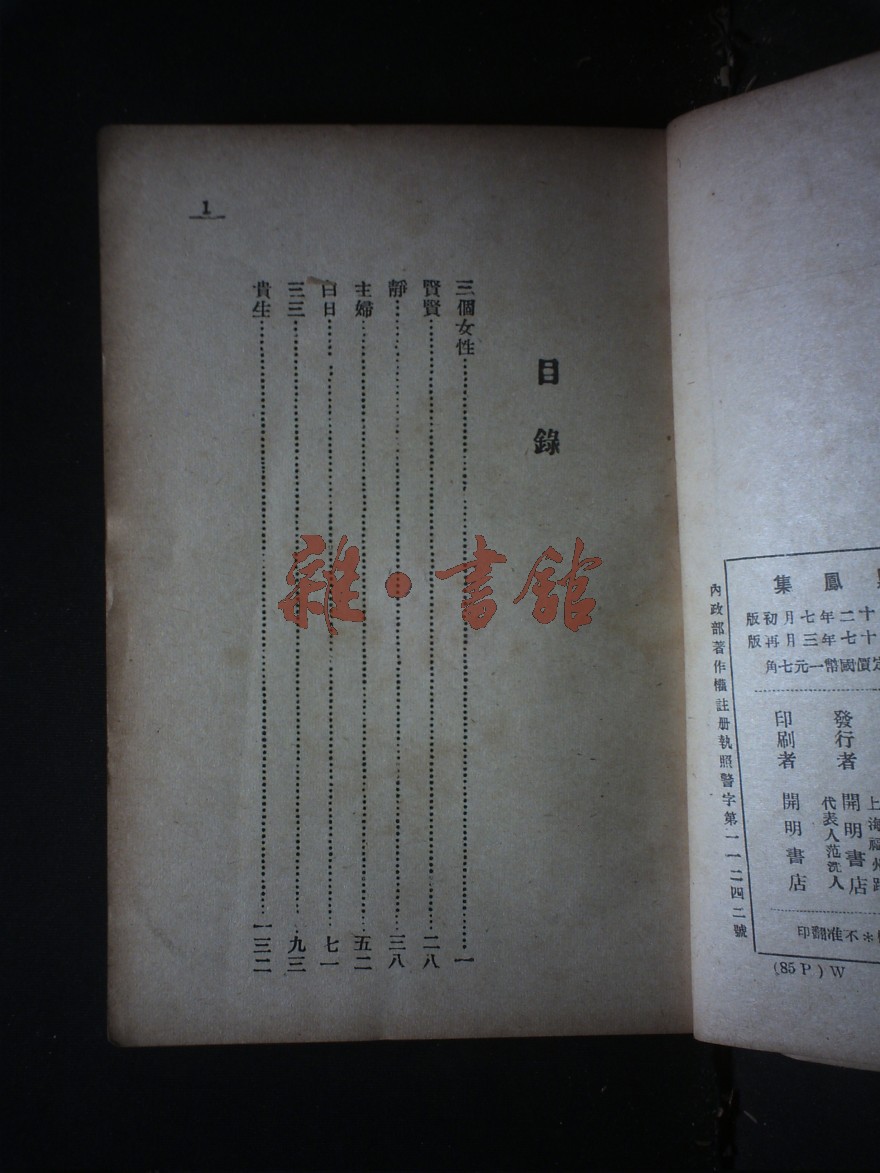 1
目錄
三個女性……一
賢賢……二八
靜……三八
主婦……五二
白日……七一
三三……九三
貴生……一三二
雜·書館
鳳集
十二年七月初版
十七年三月再版
定價國幣一元七角
發行者 開明書店
代表人范洗人
上海福州路
印刷者 開明書店
＊不准翻印
內政部著作權註册執照警字第一一二四二號
(85 P) W